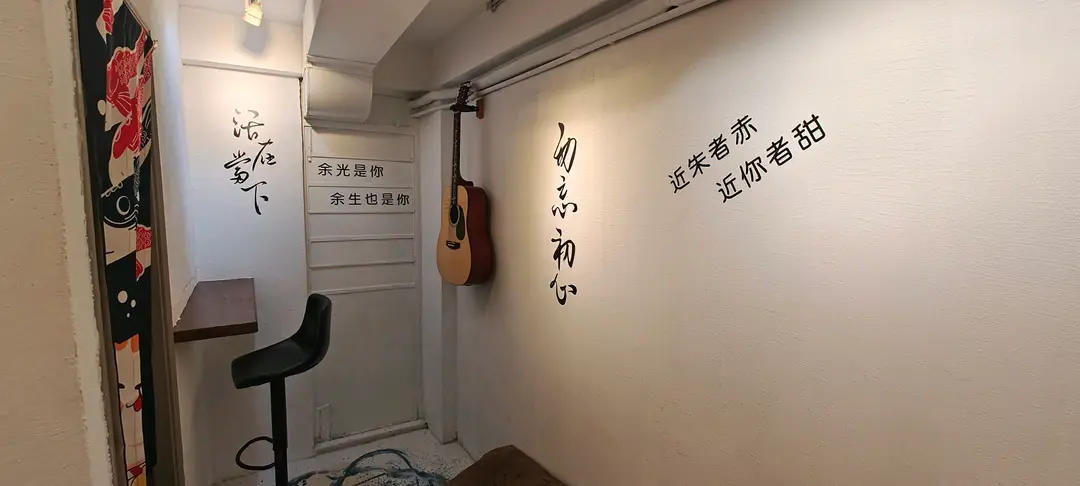 活在當下
余光是你
余生也是你
勿忘初心
近朱者赤
近你者甜